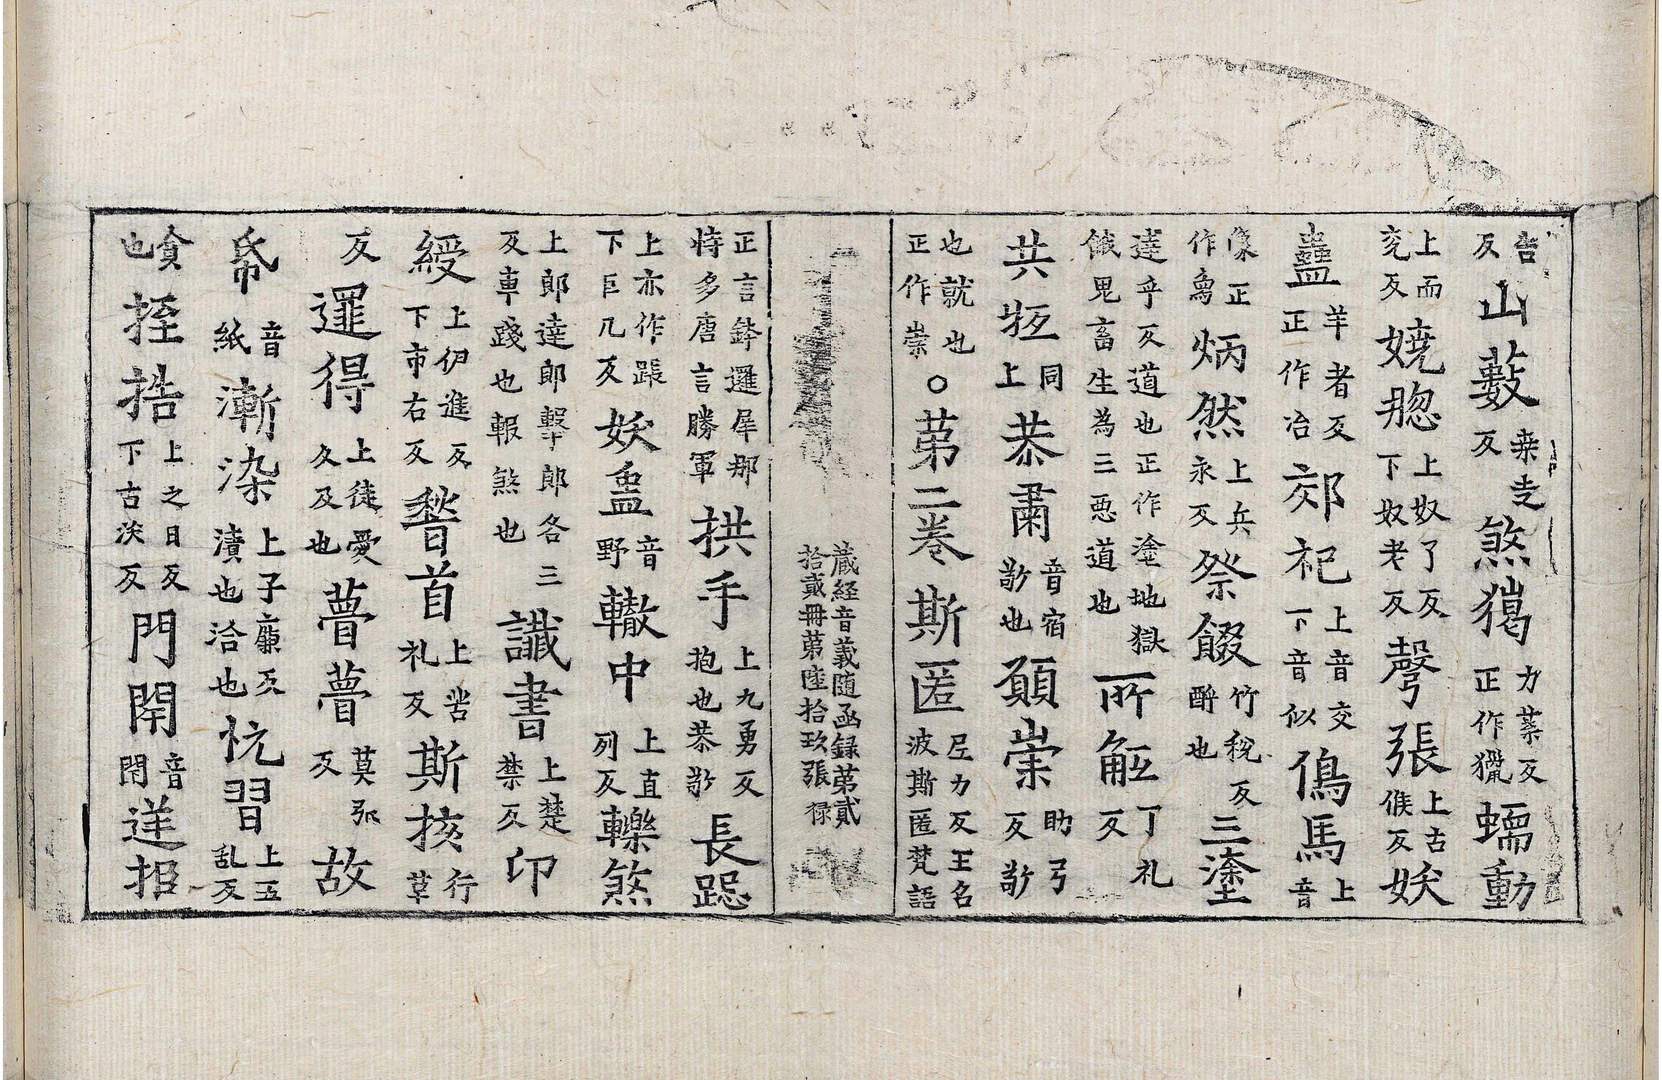 告反山藪桒走反煞猲力葉反正作獵蠕動
上而兖反嬈腮上奴了反下奴老反鼛張上古侯反妖
蠱羊者反正作冶郊祀上音交下音似傿馬上音
像正作爲炳然上兵永反祭餟竹稅反酹也三塗
達乎反道也正作塗地獄餓鬼畜生為三惡道也所觝丁礼反
共㹥同上恭肅音宿敬也願崇助弓反敬
也就也正作崇○苐二卷斯匿尼力反王名波斯匿梵語
藏経音義随函録苐貳拾貳冊苐陸拾玖張祿
正言鉢邏犀那恃多唐言勝軍拱手上九勇反抱也恭敬長跽
上亦作䠆下巨几反妖蛊音野轍中上直列反轢煞
上郎達郎擊郎各三反車踐也輾煞也讖書上楚禁反印
綬上伊進反下市右反𥡴首上苦礼反斯核行革
反邏得上徒愛反及也瞢瞢莫弘反故
㡀音紙漸染上子廉反瀆也洽也忨習上五乱反
貪也挃捁上之日反下古沃反門閈音閈送招